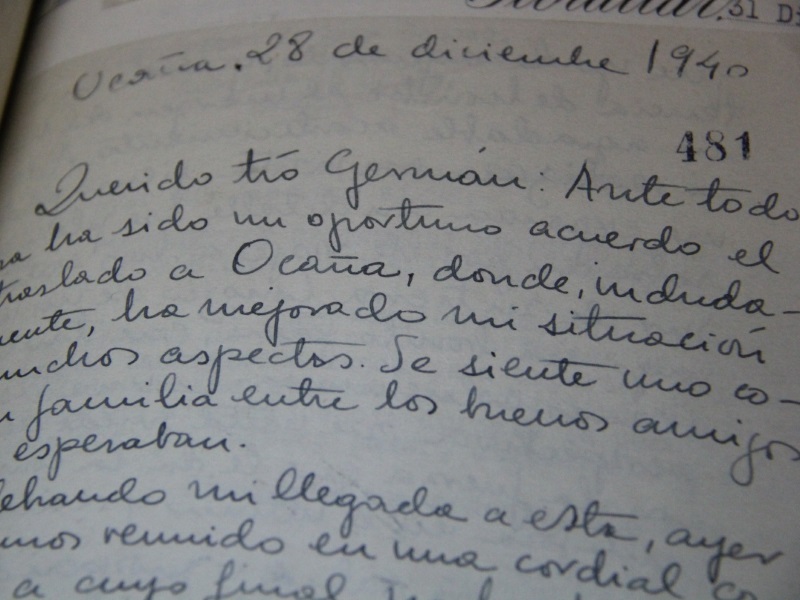 31 D
Ocaña. 28 de diciembre 1940
481
Querido tió Germán: Ante todo
ha sido un oportuno acuerdo el
traslado a Ocaña, donde, induda-
mente, ha mejorado mi situación
muchos aspectos. Se siente uno co-
familia entre los buenos amigos
esperaban.
mi llegada a esta, ayer
mos reunido en una cordial co
a cuyo final